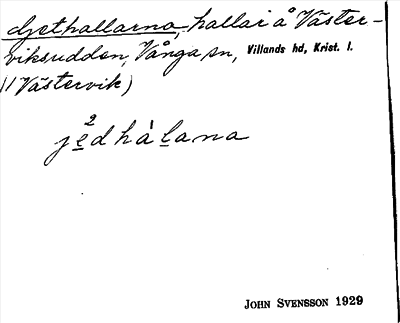 Gjethallarna, hallar å Väster-
viksudden, Vånga sn, Villands hd, Krist. l.
(/ Västervik)
2
jedhàlana
JOHN SVENSSON 1929